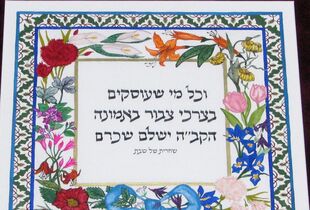 וכל מי שעוסקים
בצרכי צבור באמונה
הקב״ה ישלם שכרם
שחרית של שבת